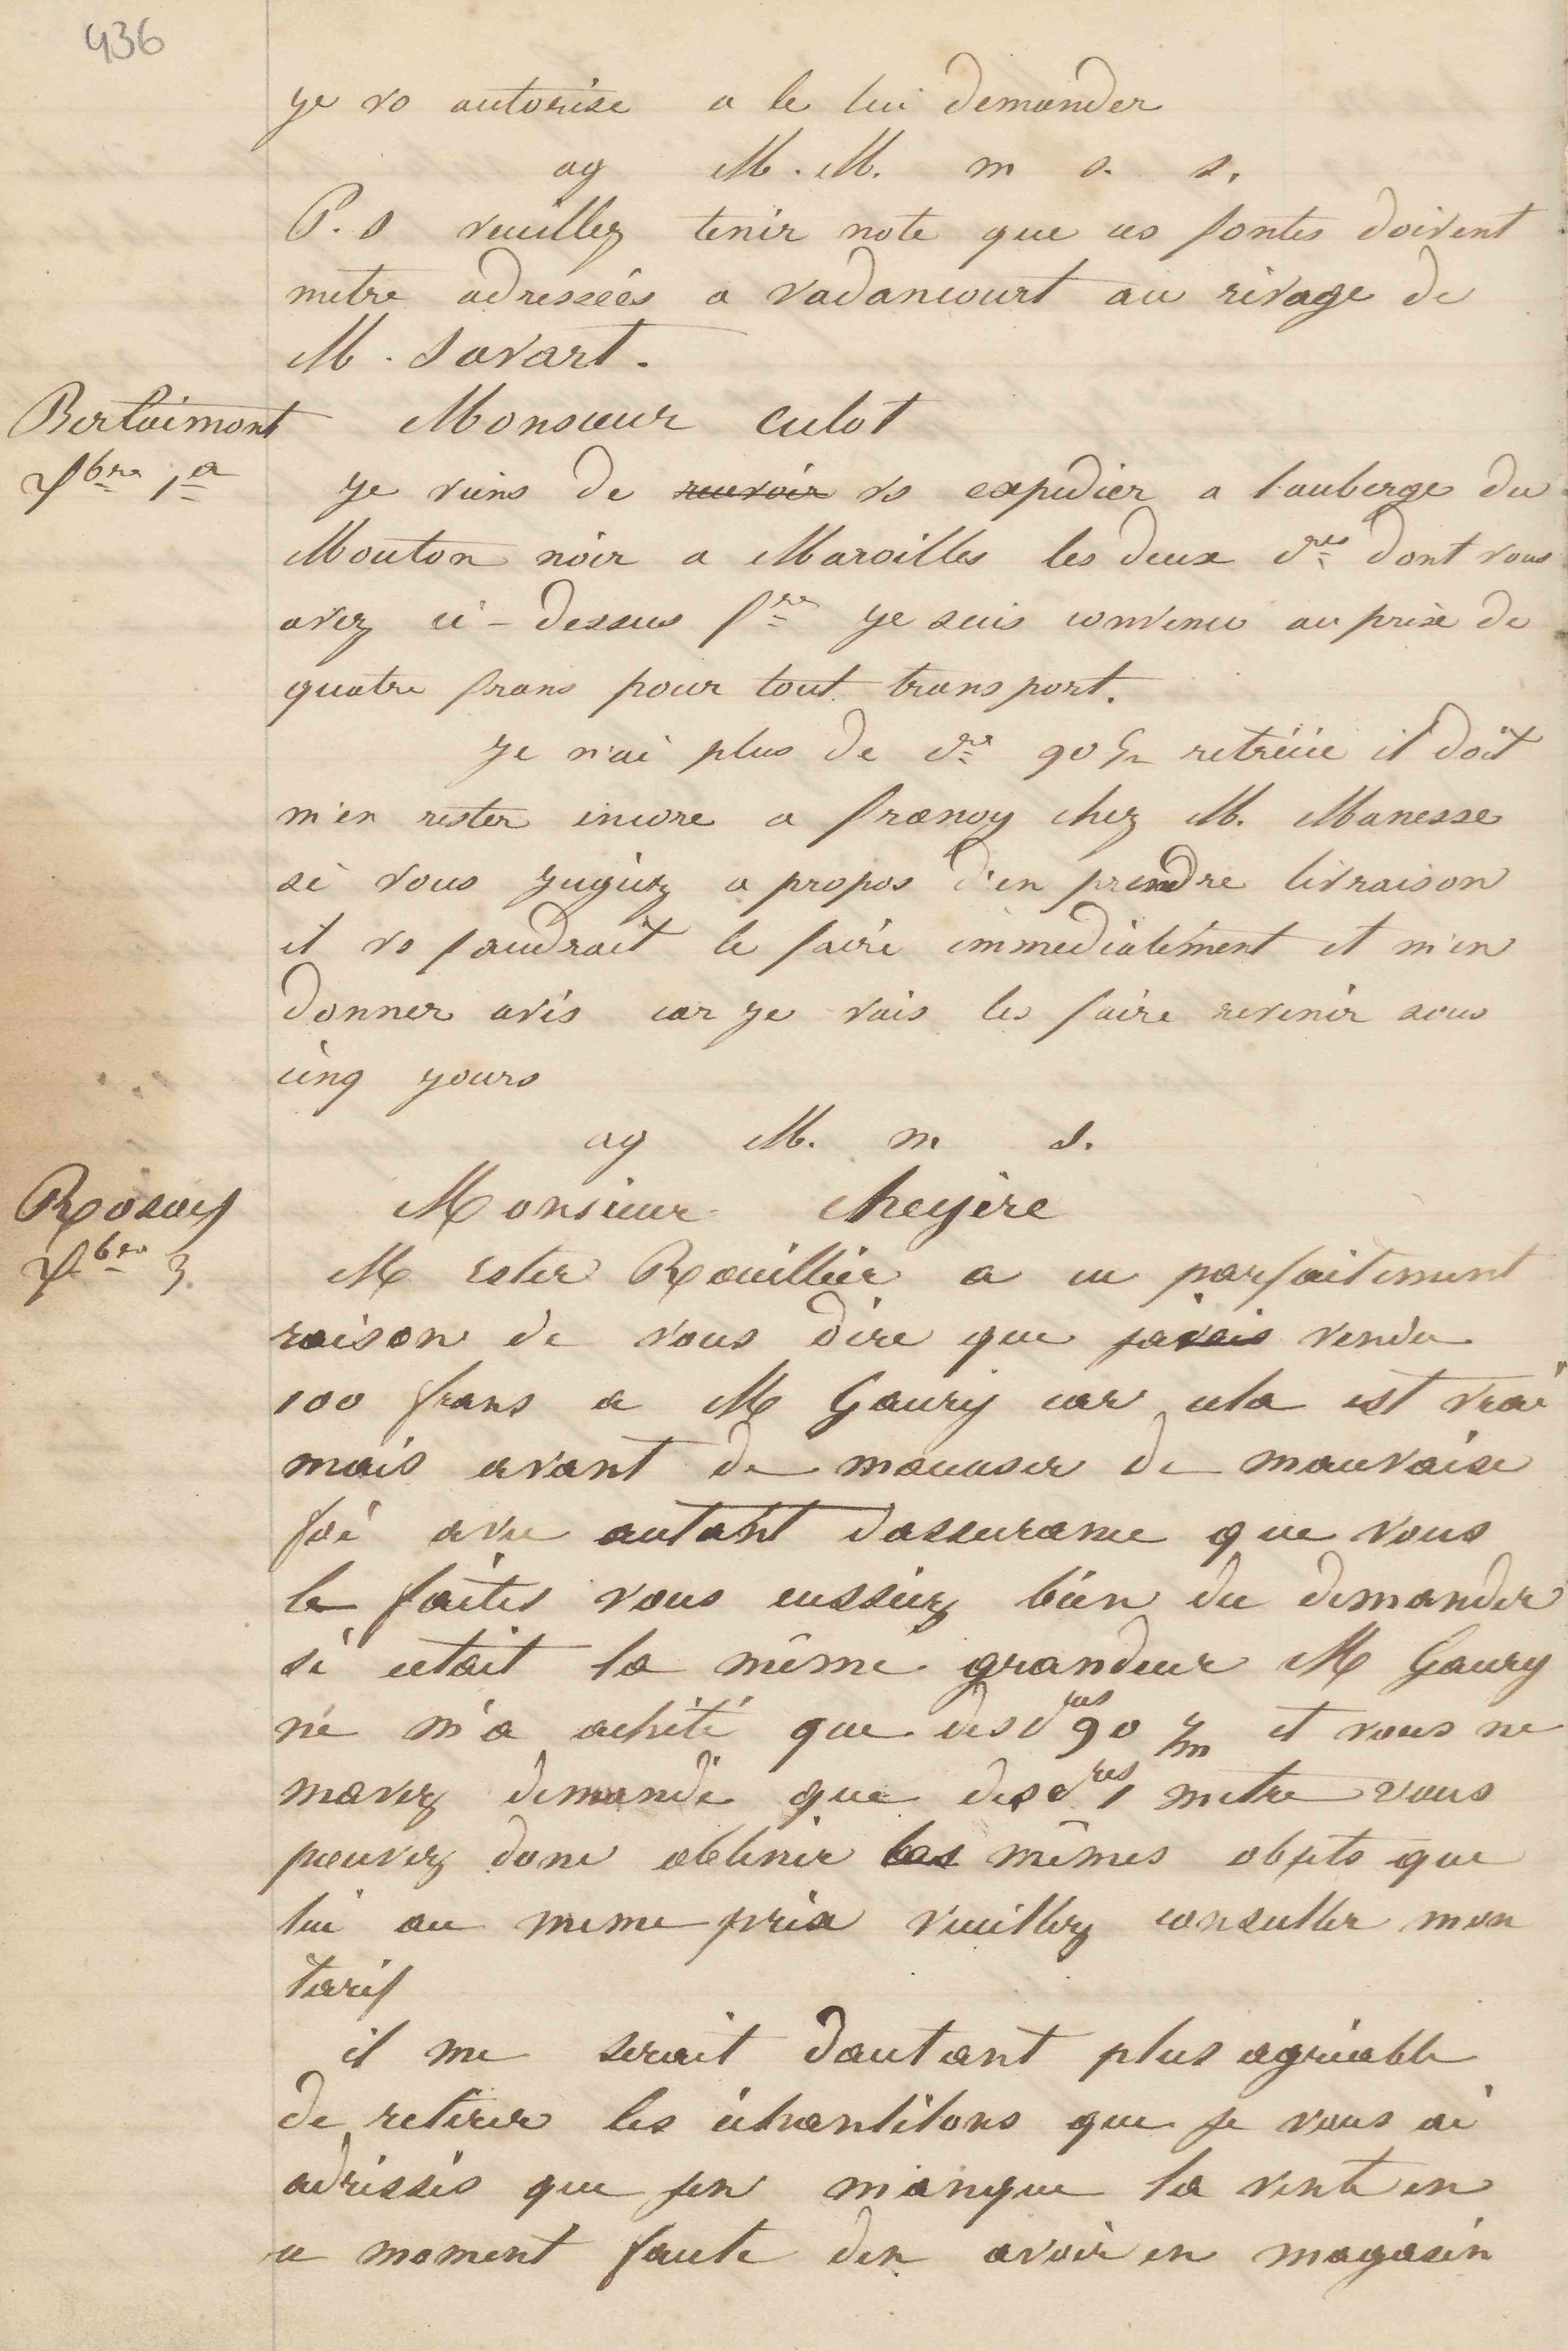 436
ye vs autorise a le lui demander
ag M. M. m s. s.
P. S veuillez tenir note que ces fontes doivent
metre adressées a vadancourt au rivage de
M. Savart.
Berlaimont
Monsieur Culot
7bre 1er
ye viens de recevoir vs expedier a l'auberge du
Mouton noir a Maroilles les deux dres dont vous
avez ci-dessus fre ye suis convenu au prix de
quatre frans pour tout transport.
ye n'ai plus de dre 90 retréüe il doit
m'en rester encore a frænoy chez M. Manesse
si vous yugiez a propos d'en prendre livraison
il vs faudrait le faire immediatement et m'en
donner avis car ye vais les faire revenir sous
cinq yours
ag M. m s.
Rosoy
Monsieur cheyère
7bre 3.
M Ester Rouillier a eu parfaitement
raison de vous dire que javais vendu
100 frans a M Gaury car cela est vrai
mais avant de maccuser de mauvaise
foi avec autant dassurance que vous
le faites vous eussiez bien du demander
si cetait la même grandeur M Gaury
ne m'a acheté que des dres 90 c/m et vous ne
mavez demandé que des dres 1 metre vous
pouvez donc obtenir les mêmes objets que
lui au meme prix veuillez consulter mon
tarif
il me serait dautant plus agréable
de retirer les échantillons que je vous ai
adressés que jen manque la vente en
ce moment faute den avoir en magasin